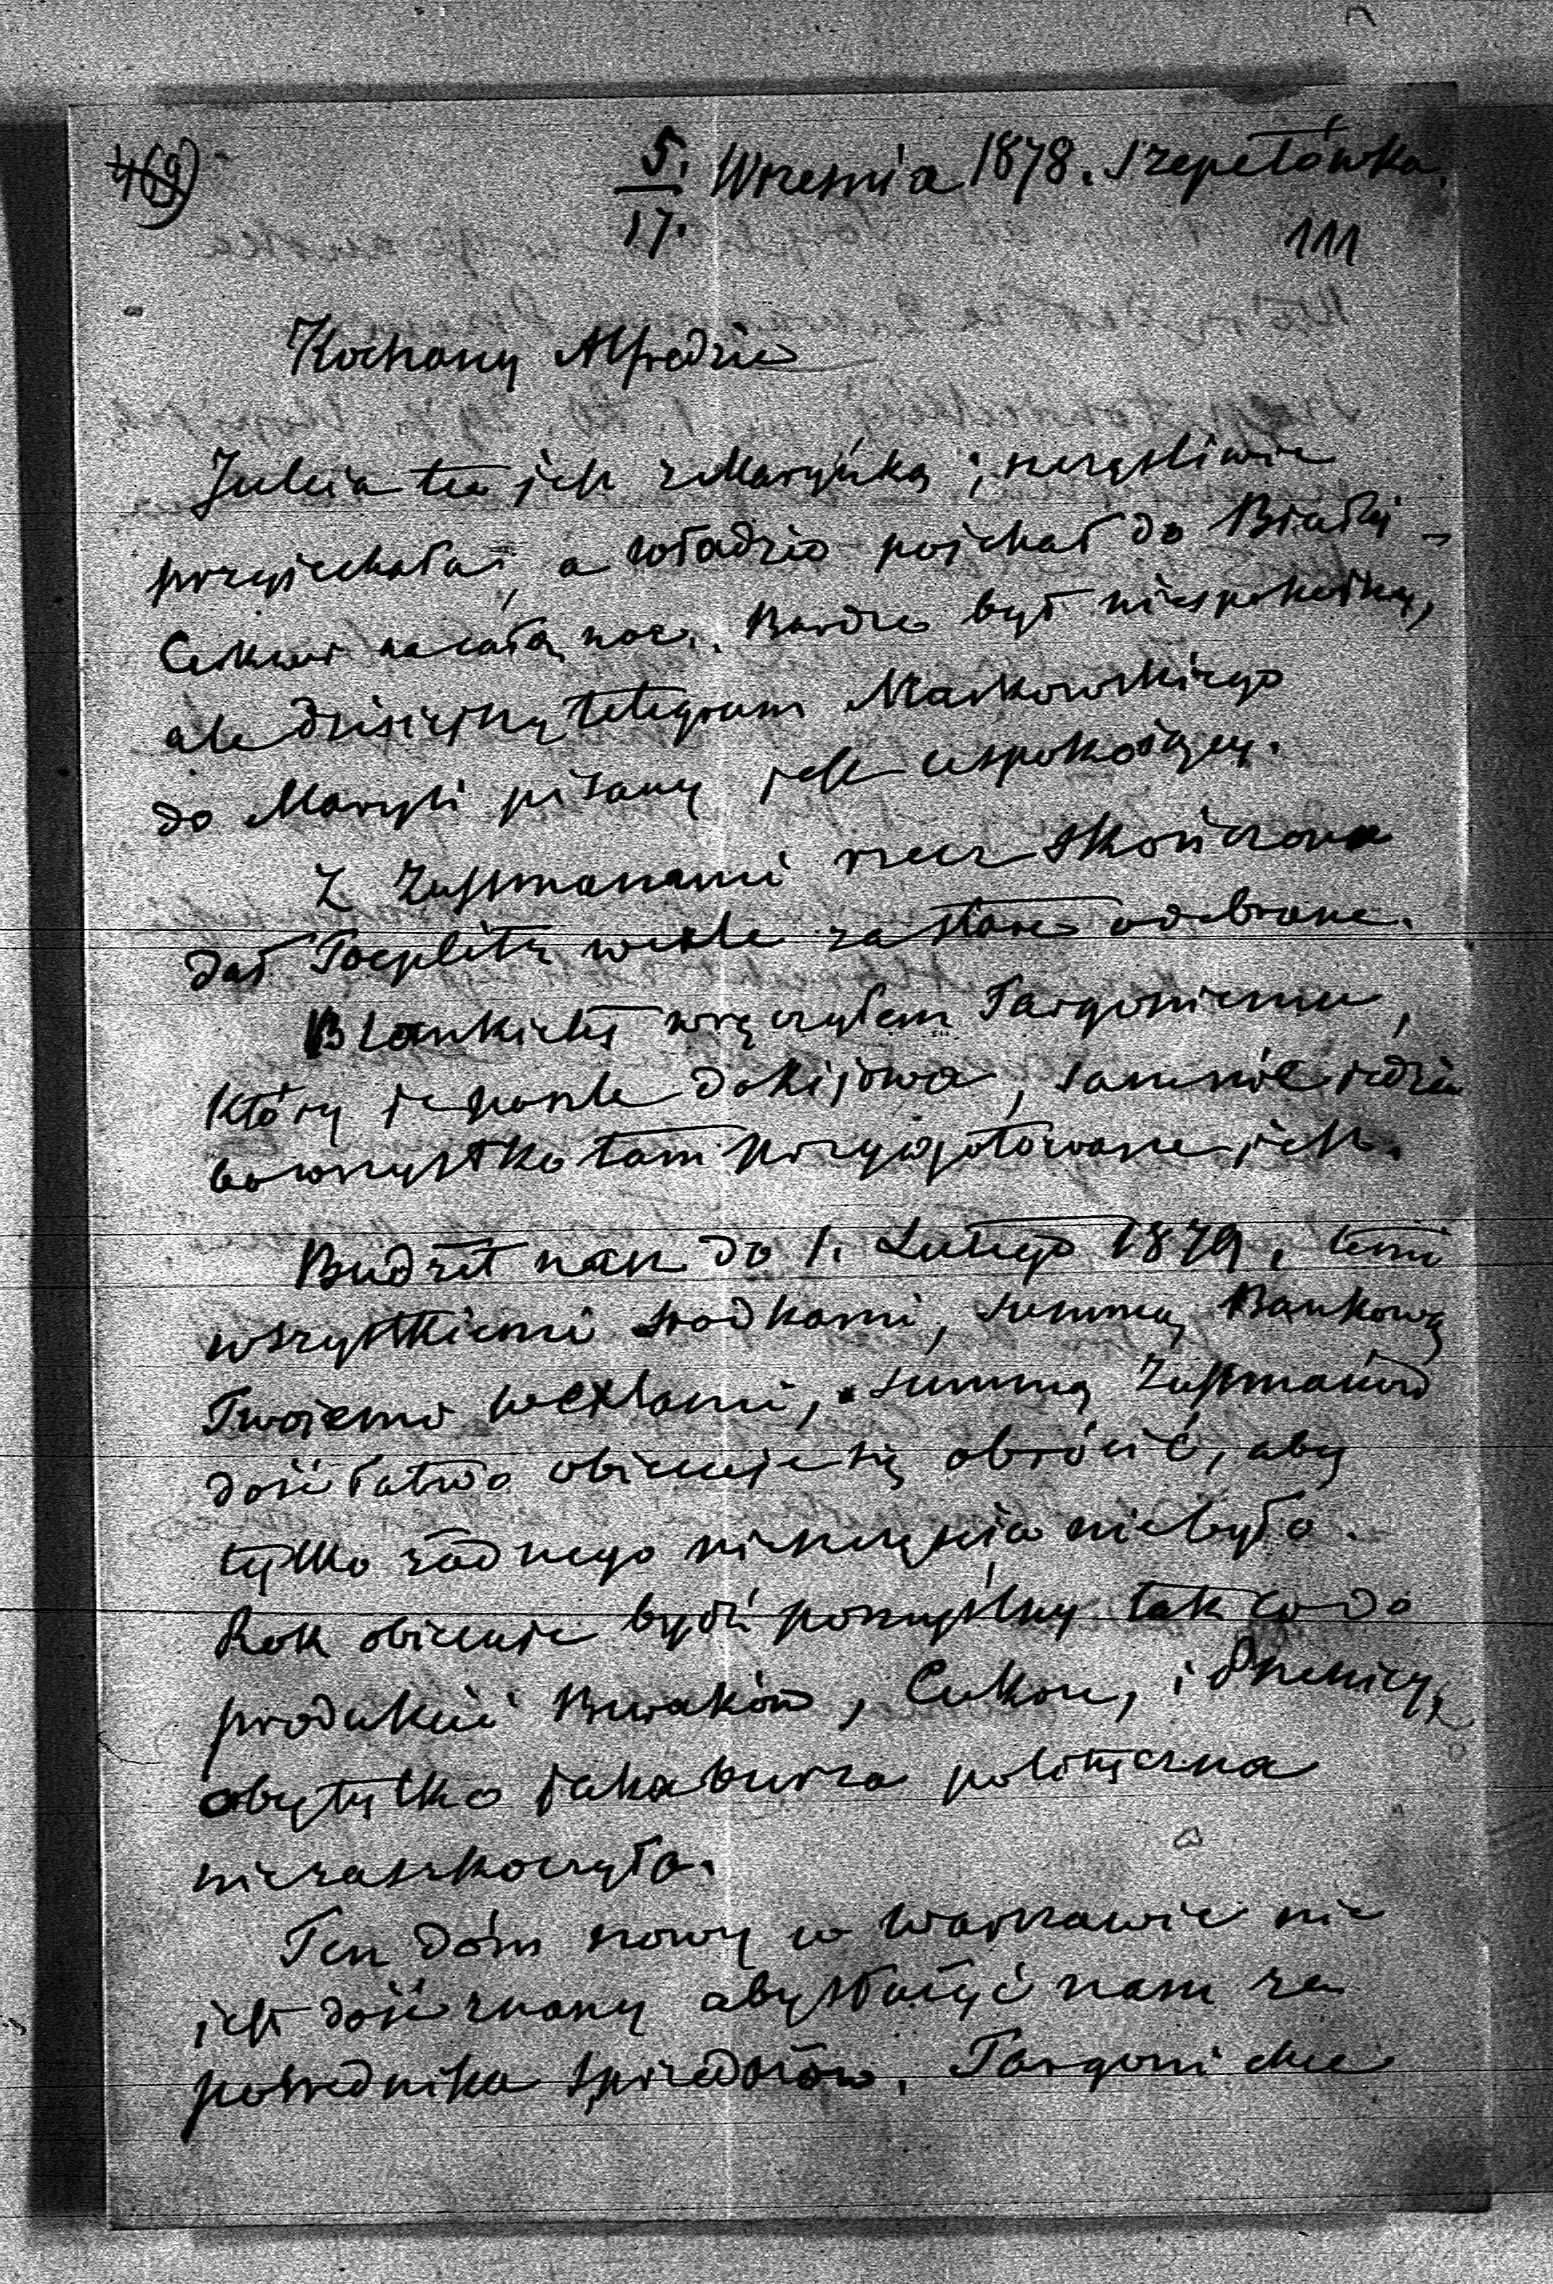 469)
5./17. Wrzesnia 1878. Szepetówka.
111
Kochany Alfredzie
Julcia tu jest z Maryńką; szczęśliwie
przyjechała, a Władzio pojechał do Białej-
Cerkwi na całą noc. Bardzo był niespokojny,
ale dzisiejszy telegram Markowskiego
do Maryli pisany jest uspokojący.
Z Zussmanami rzecz skończona
dał Toeplitz wexle za stare odebrane.
Blankiety wręczyłem Targoniemu,
który je poszle do Kijowa, sam nie jedzie
bo wszystko tam przygotowane jest.
Budżet nasz do 1. Lutego 1879, temi
wszystkiemi srodkami, summą Bankową
Twojemo wexlami, summą Zussmanów
dość łatwo obiecuje się obrócić, aby
tylko żadnego nieszczęścia niebyło.
Rok obiecuje bydź pomyślny tak co do
produkcii Buraków, Cukru, i Pszenicy,
oby tylko jaka burza polityczna
niezaszkoczyła.
Ten dóm nowy w Warszawie nie
jest dość znany aby służyć nam za
posrednika Sprzedażów. Targoni chce